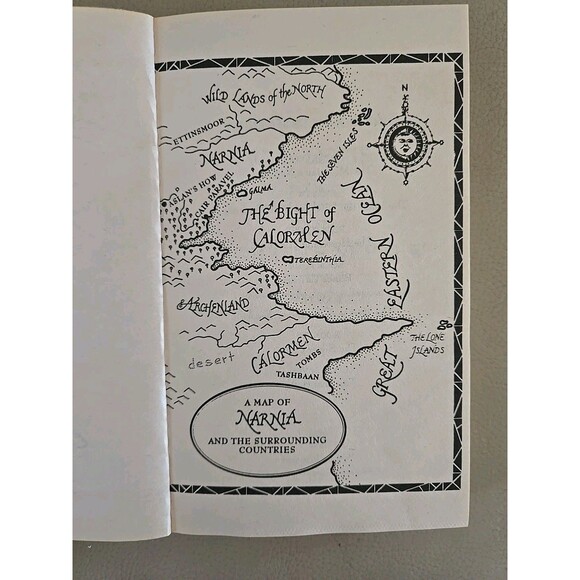 WILD LANDS of the NORTH
N
ETTINSMOOR
THE SEVEN ISLES
NARNIA
ASLAN'S HOW
CAIR PARAVEL
GALMA
THE BIGHT of
CALORMEN
TEREBINTHIA
GREAT EASTERN OCEAN
ARCHENLAND
THE LONE
ISLANDS
desert
CALORMEN
TOMBS
TASHBAAN
A MAP OF
NARNIA
AND THE SURROUNDING
COUNTRIES